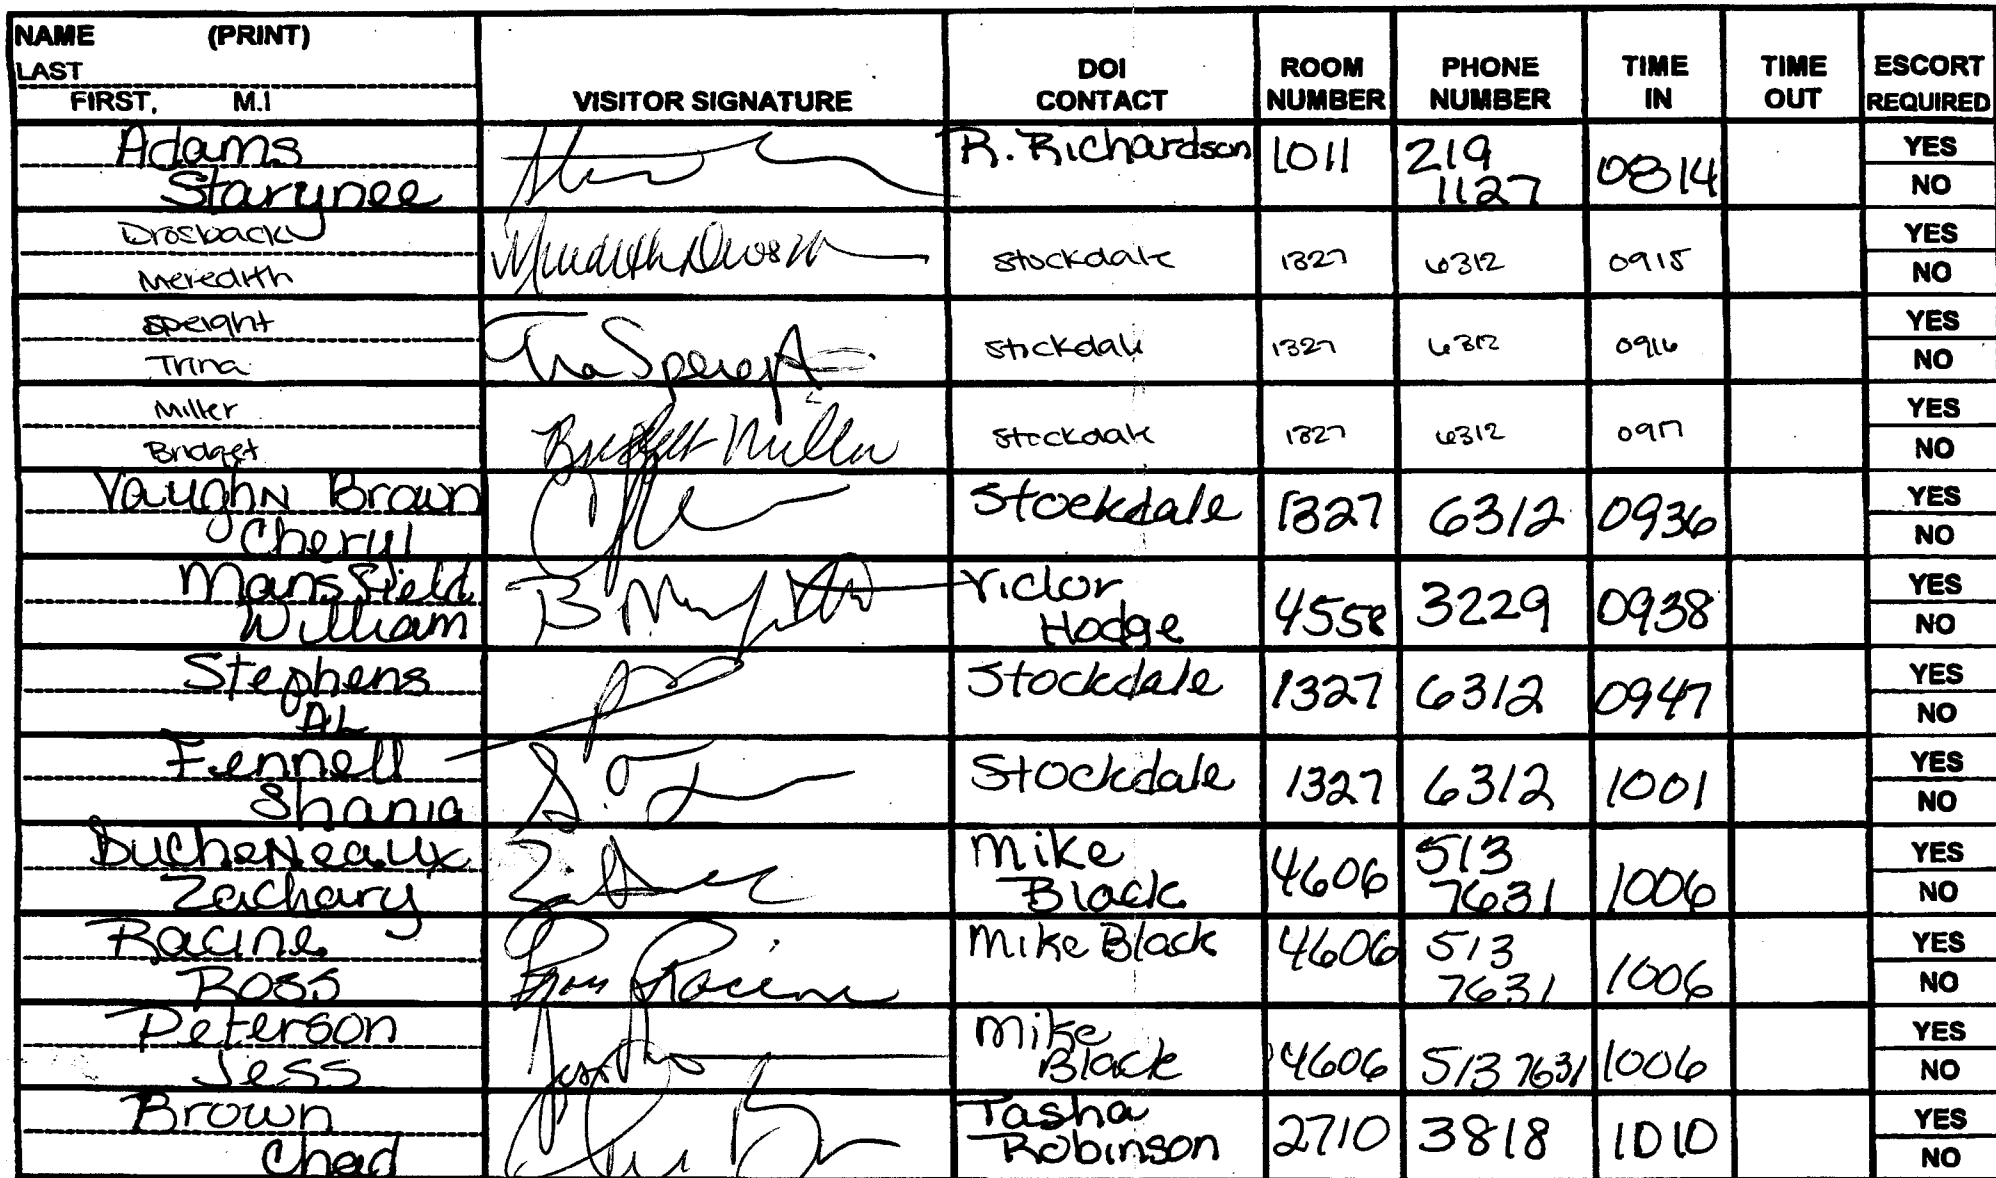 NAME (PRINT)
LAST
FIRST, M.I
VISITOR SIGNATURE
DOI CONTACT
ROOM NUMBER
PHONE NUMBER
TIME IN
TIME OUT
ESCORT REQUIRED
Adams
Starynee
R. Richardson 1011 219 1127 0814 YES NO
Drosback
Meredith
Stockdale 1327 6312 0915 YES NO
Speight
Trina
Stockdale 1327 6312 0916 YES NO
Miller
Bridget
Bridget Miller
Stockdale 1327 6312 0917 YES NO
Vaughn Brown
Cheryl
Stockdale 1327 6312 0936 YES NO
Mansfield
William
Victor Hodge 4558 3229 0938 YES NO
Stephens
AL
Stockdale 1327 6312 0947 YES NO
Fennell
Shania
Stockdale 1327 6312 1001 YES NO
DucheNeaux
Zachary
Mike Black 4606 513 7631 1006 YES NO
Racine
Ross
Ross Racine
Mike Black 4606 513 7631 1006 YES NO
Peterson
Jess
Mike Black 4606 513 7631 1006 YES NO
Brown
Chad
Tasha Robinson 2710 3818 1010 YES NO